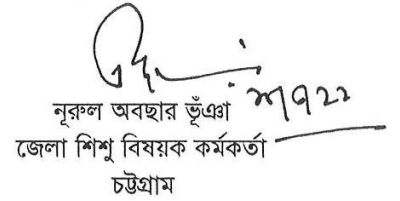 নূরুল অবছার ভূঁঞা
জেলা শিশু বিষয়ক কর্মকর্তা
চট্টগ্রাম